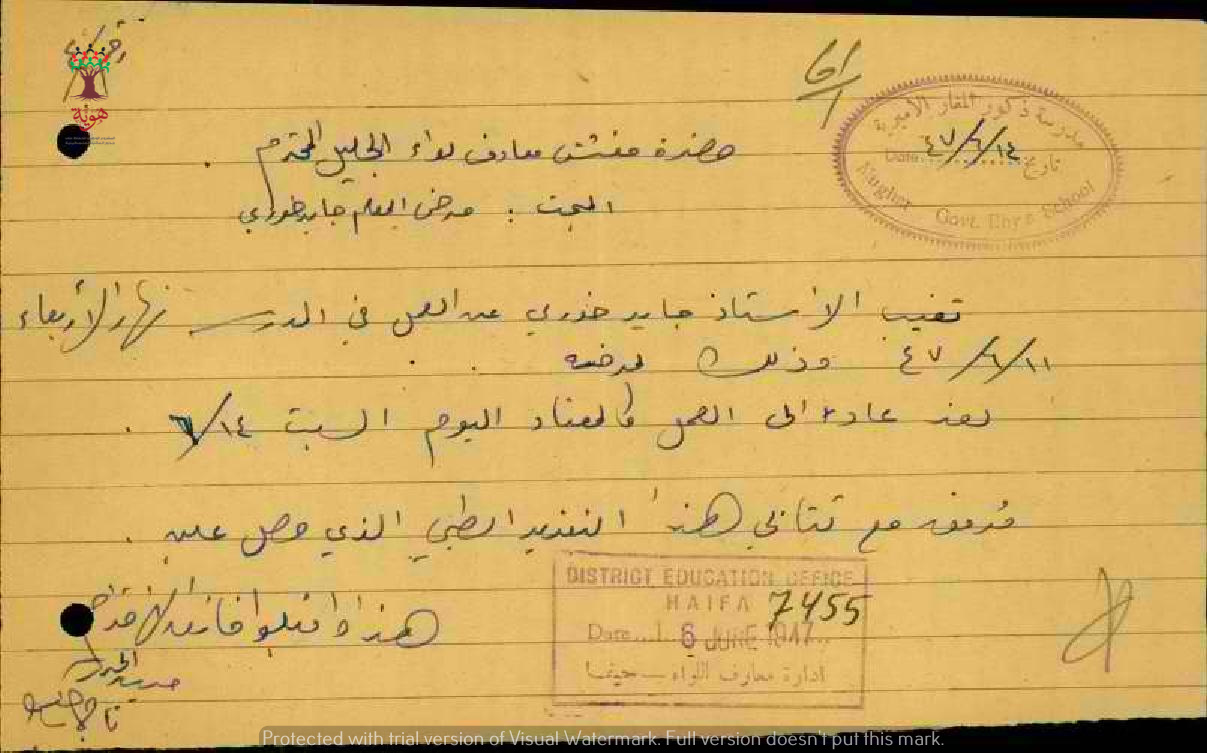 ٦١/
مدرسة ذكور المغار الأميرية
٤٧/٦/١٤
Date تاريخ
Mughar Govt. Boys School
حضرة مفتش معارف لواء الجليل المحترم .
البحث : مرض المعلم جايد خوري
تغيب الأستاذ جايد خوري عن العمل في المدرسة نهار الأربعاء
٤٧/٦/١١ وذلك لمرضه .
لقد عاد الى العمل كالمعتاد اليوم السبت ٦/١٤ .
مرفق مع كتابي هذا التقرير الطبي الذي حصل عليه .
هذا واقبلوا فائق الاحترام
مدير المدرسة
DISTRICT EDUCATION OFFICE
HAIFA 7455
Date 16 JUNE 1947
ادارة معارف اللواء – حيفا
هوية
Protected with trial version of Visual Watermark. Full version doesn't put this mark.